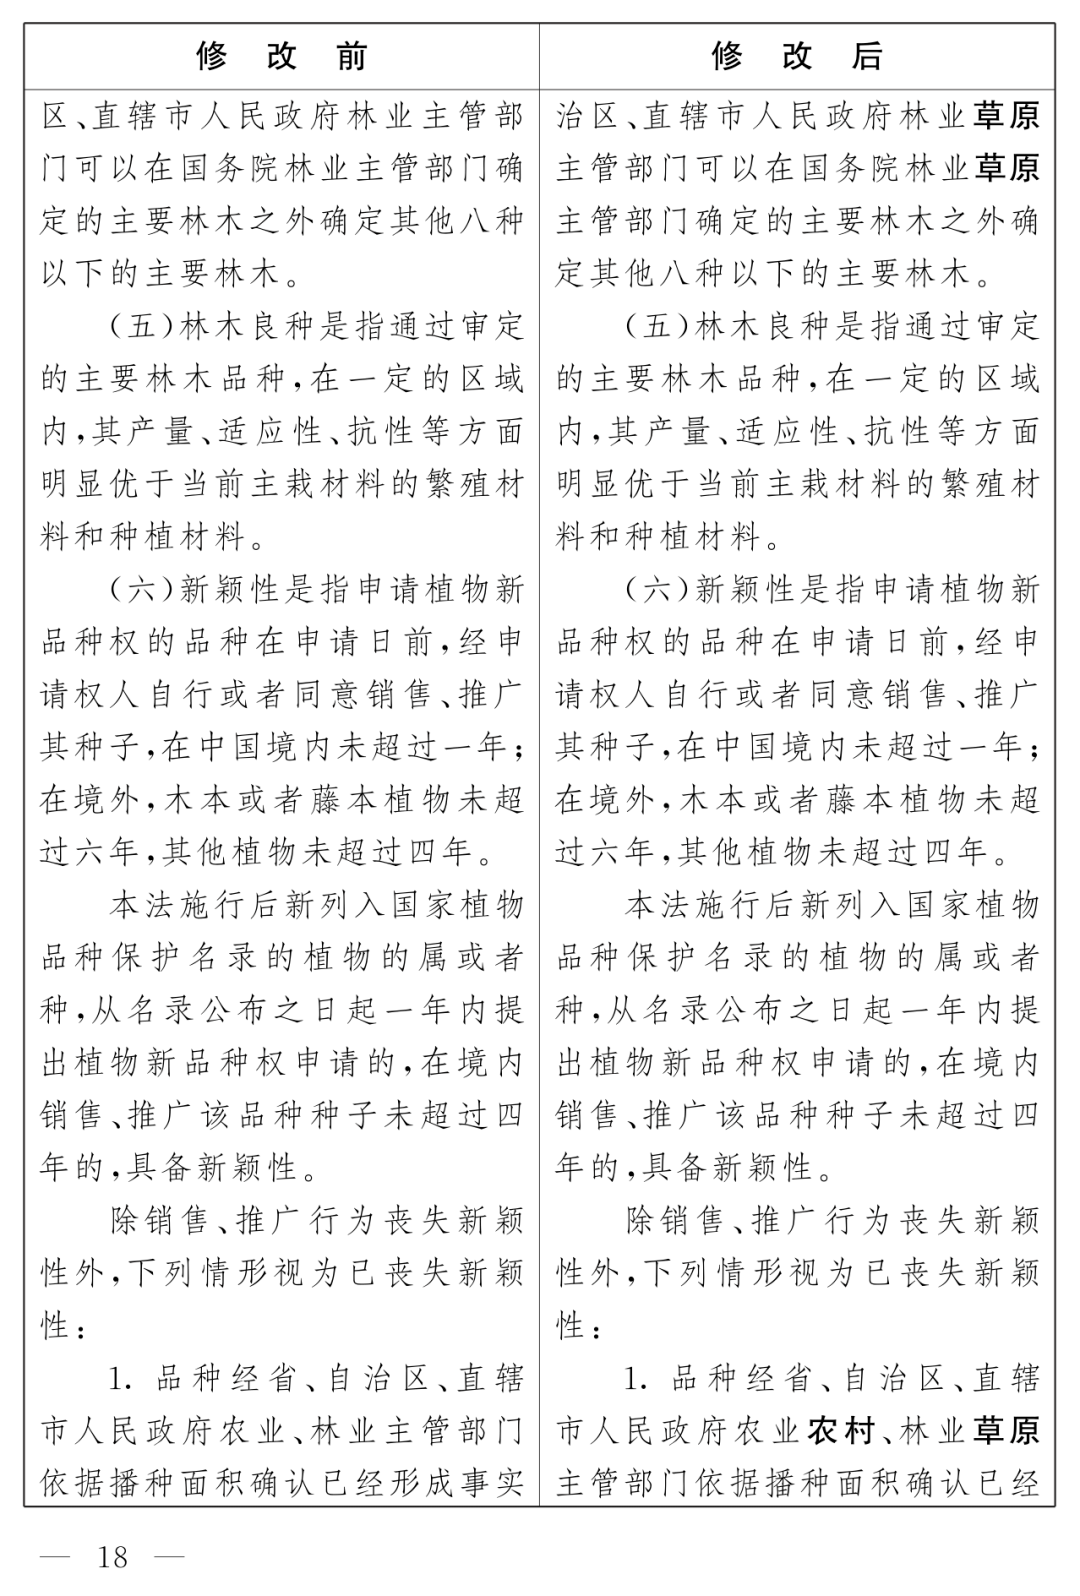 修 改 前
区、直辖市人民政府林业主管部
门可以在国务院林业主管部门确
定的主要林木之外确定其他八种
以下的主要林木。
(五)林木良种是指通过审定
的主要林木品种,在一定的区域
内,其产量、适应性、抗性等方面
明显优于当前主栽材料的繁殖材
料和种植材料。
(六)新颖性是指申请植物新
品种权的品种在申请日前,经申
请权人自行或者同意销售、推广
其种子,在中国境内未超过一年;
在境外,木本或者藤本植物未超
过六年,其他植物未超过四年。
本法施行后新列入国家植物
品种保护名录的植物的属或者
种,从名录公布之日起一年内提
出植物新品种权申请的,在境内
销售、推广该品种种子未超过四
年的,具备新颖性。
除销售、推广行为丧失新颖
性外,下列情形视为已丧失新颖
性:
1. 品种经省、自治区、直辖
市人民政府农业、林业主管部门
依据播种面积确认已经形成事实
修 改 后
治区、直辖市人民政府林业草原
主管部门可以在国务院林业草原
主管部门确定的主要林木之外确
定其他八种以下的主要林木。
(五)林木良种是指通过审定
的主要林木品种,在一定的区域
内,其产量、适应性、抗性等方面
明显优于当前主栽材料的繁殖材
料和种植材料。
(六)新颖性是指申请植物新
品种权的品种在申请日前,经申
请权人自行或者同意销售、推广
其种子,在中国境内未超过一年;
在境外,木本或者藤本植物未超
过六年,其他植物未超过四年。
本法施行后新列入国家植物
品种保护名录的植物的属或者
种,从名录公布之日起一年内提
出植物新品种权申请的,在境内
销售、推广该品种种子未超过四
年的,具备新颖性。
除销售、推广行为丧失新颖
性外,下列情形视为已丧失新颖
性:
1. 品种经省、自治区、直辖
市人民政府农业农村、林业草原
主管部门依据播种面积确认已经
— 18 —